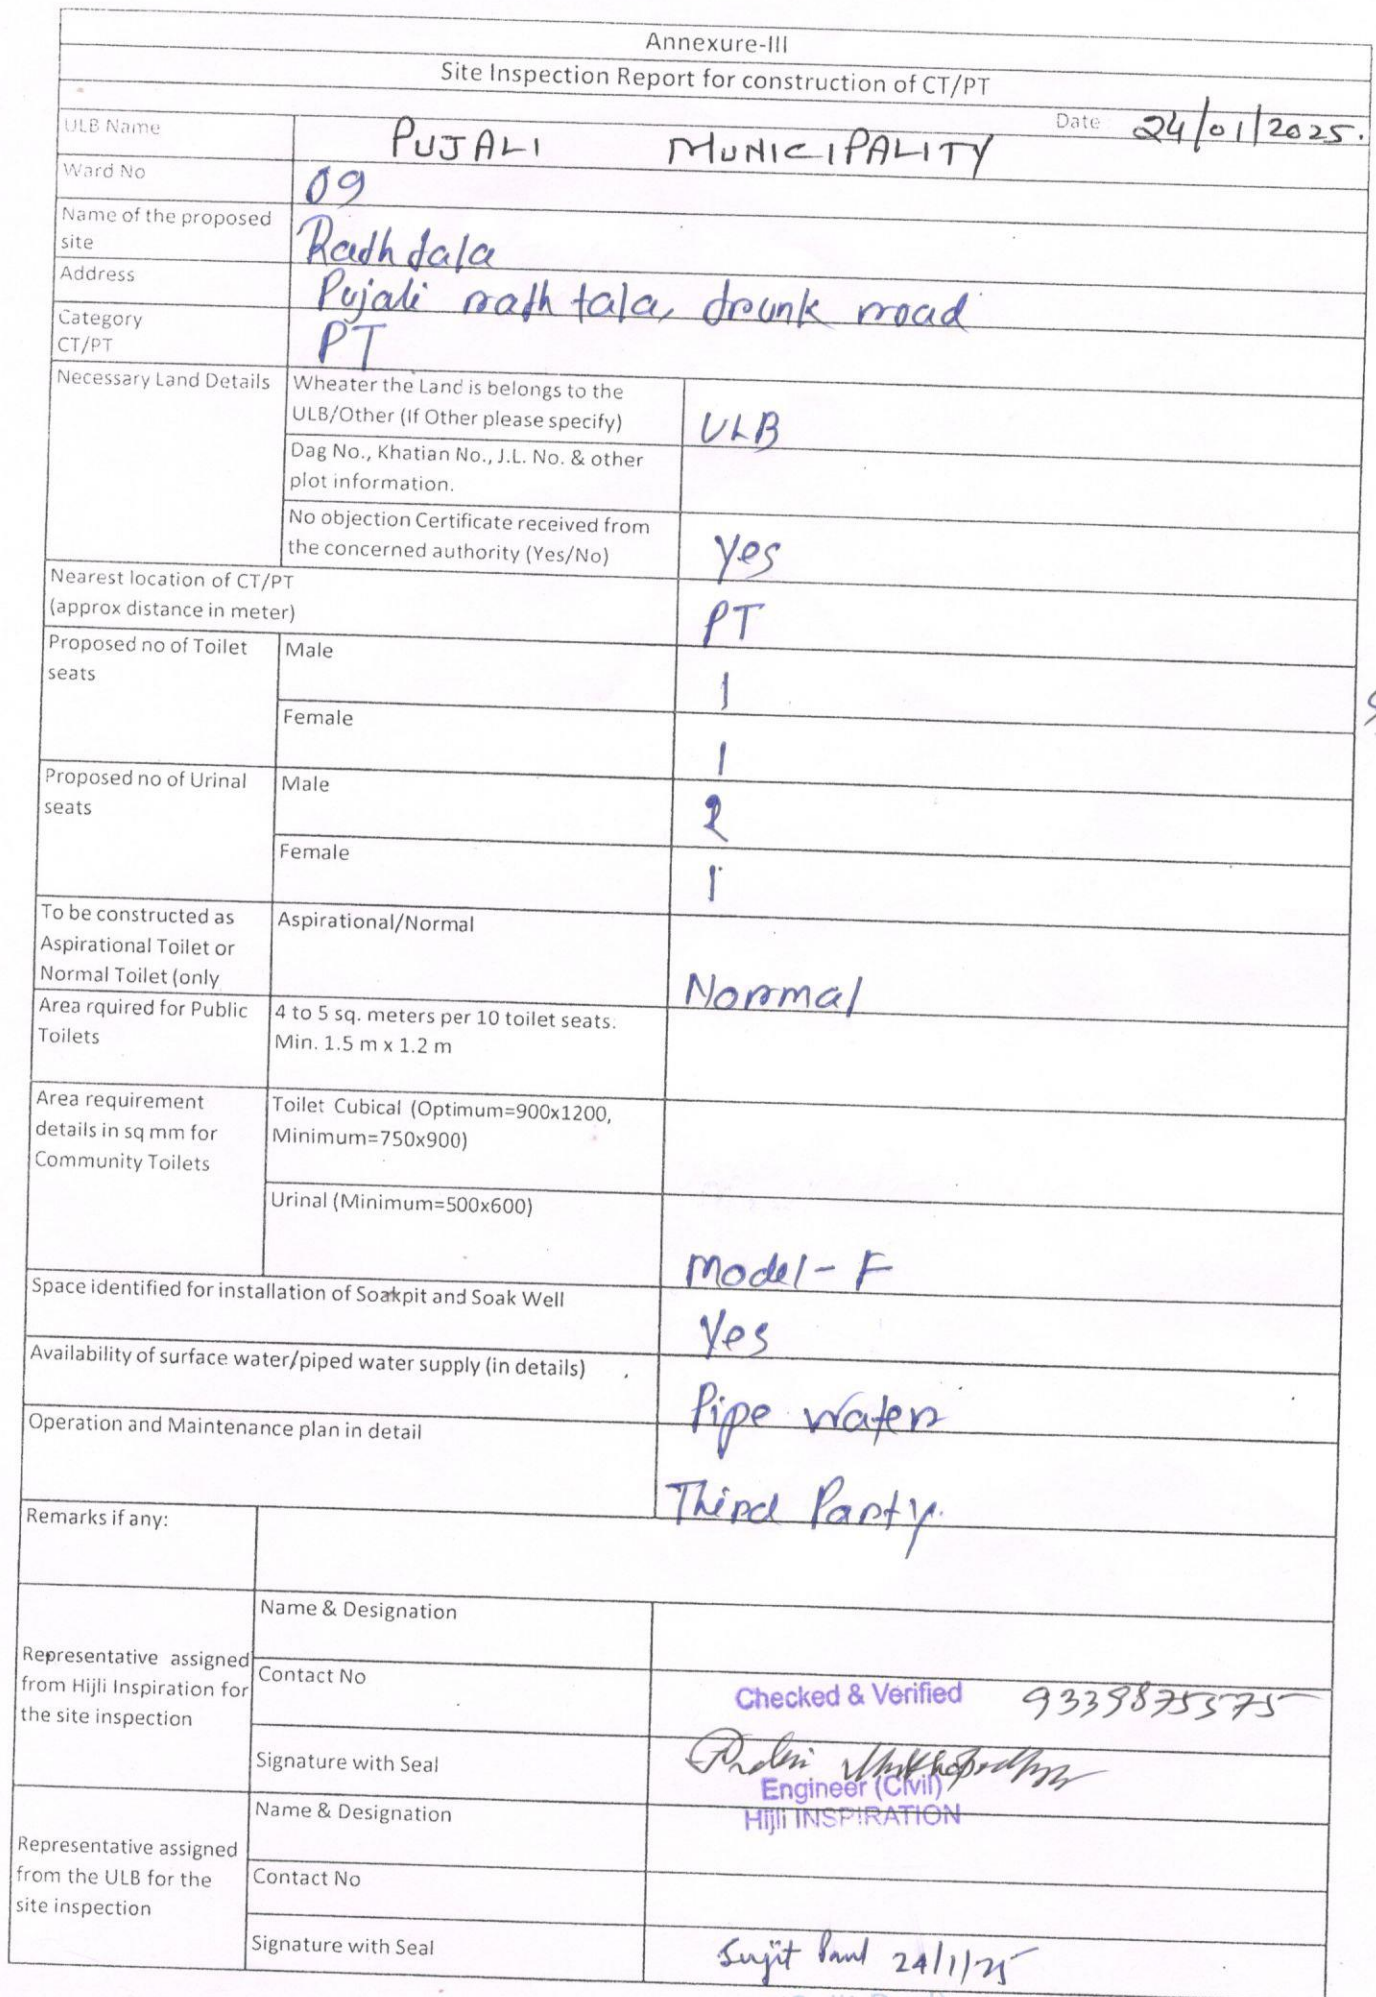 Annexure-III
Site Inspection Report for construction of CT/PT
Date 24/01/2025.
ULB Name PUJALI MUNICIPALITY
Ward No 09
Name of the proposed
site Radhdala
Address Pujali rath tala, trunk road
Category
CT/PT PT
Necessary Land Details Wheater the Land is belongs to the
ULB/Other (If Other please specify) ULB
Dag No., Khatian No., J.L. No. & other
plot information.
No objection Certificate received from
the concerned authority (Yes/No) Yes
Nearest location of CT/PT
(approx distance in meter) PT
Proposed no of Toilet
seats
Male 1
Female 1
Proposed no of Urinal
seats
Male 2
Female 1
To be constructed as
Aspirational Toilet or
Normal Toilet (only
Aspirational/Normal Normal
Area rquired for Public
Toilets
4 to 5 sq. meters per 10 toilet seats.
Min. 1.5 m x 1.2 m
Area requirement
details in sq mm for
Community Toilets
Toilet Cubical (Optimum=900x1200,
Minimum=750x900)
Urinal (Minimum=500x600) Model-F
Space identified for installation of Soakpit and Soak Well Yes
Availability of surface water/piped water supply (in details) Pipe water
Operation and Maintenance plan in detail Third Party.
Remarks if any:
Representative assigned
from Hijli Inspiration for
the site inspection
Name & Designation
Contact No Checked & Verified 9339875575
Signature with Seal
Engineer (Civil)
Hijli INSPIRATION
Representative assigned
from the ULB for the
site inspection
Name & Designation
Contact No
Signature with Seal Sujit Paul 24/1/25